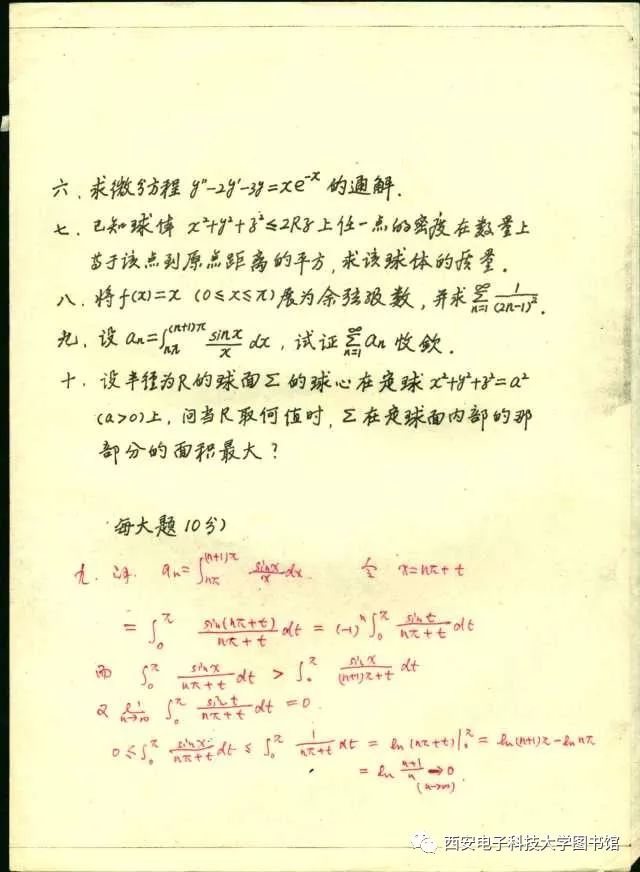 六、求微分方程 y″-2y′-3y=xe^{-x} 的通解.
七、已知球体 x²+y²+z²≤2Rz上任一点的密度在数量上
等于该点到原点距离的平方,求该球体的质量.
八、将f(x)=x (0≤x≤π)展为余弦级数,并求∑_{n=1}^{∞} 1/(2n-1)².
九、设 an=∫_{nπ}^{(n+1)π} sinx/x dx, 试证∑_{n=1}^{∞} an 收敛.
十、设半径为R的球面Σ的球心在定球 x²+y²+z²=a²
(a>0)上,问当R取何值时,Σ在定球面内部的那
部分的面积最大?
每大题10分)
九. 证. an=∫_{nπ}^{(n+1)π} sinx/x dx. 令 x=nπ+t
=∫_0^π sin(nπ+t)/(nπ+t) dt = (-1)^n ∫_0^π sint/(nπ+t) dt
而 ∫_0^π sinx/(nπ+t) dt > ∫_0^π sinx/((n+1)π+t) dt
又 lim_{n→∞} ∫_0^π sint/(nπ+t) dt = 0.
0≤∫_0^π sinx/(nπ+t) dt ≤ ∫_0^π 1/(nπ+t) dt = ln(nπ+t)|_0^π = ln(n+1)π-ln nπ
= ln (n+1)/n → 0
(n→∞).
西安电子科技大学图书馆